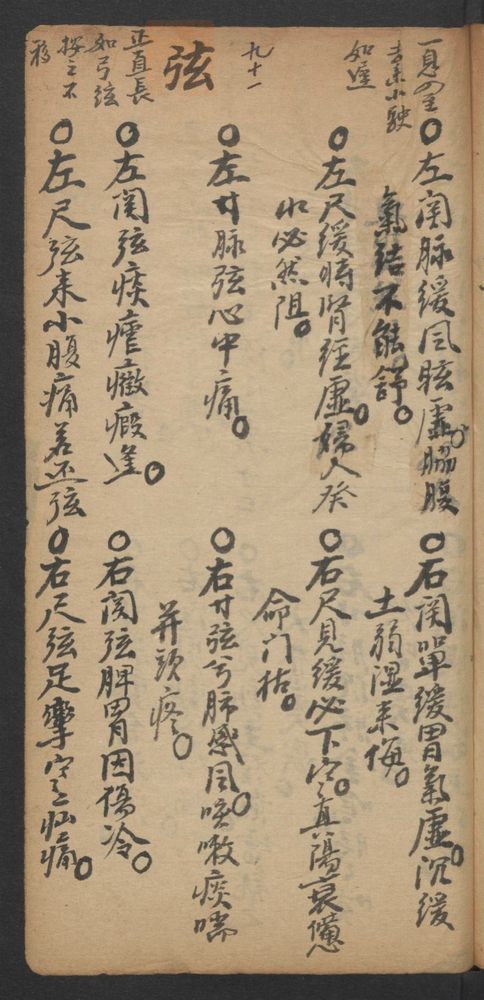 一息四至
去来小駛
如遲
〇左關脉緩風眩虛。腸腹
氣結不能舒。
〇右關單緩胃氣虛。沉緩
土弱湿来侮。
〇左尺緩時腎經虛。婦人癸
水必然阻。
〇右尺見緩必下寒。真陽衰憊
命门枯。
九十一
弦
〇左寸脉弦心中痛。
〇右寸弦兮肺感風。咳嗽痰喘
并頭疼。
正直長
如弓弦
按之不
移
〇左関弦痰瘧癥瘕逢。
〇右関弦脾胃因傷冷。
〇左尺弦来小腹痛若还弦
〇右尺弦足攣寒疝痛。